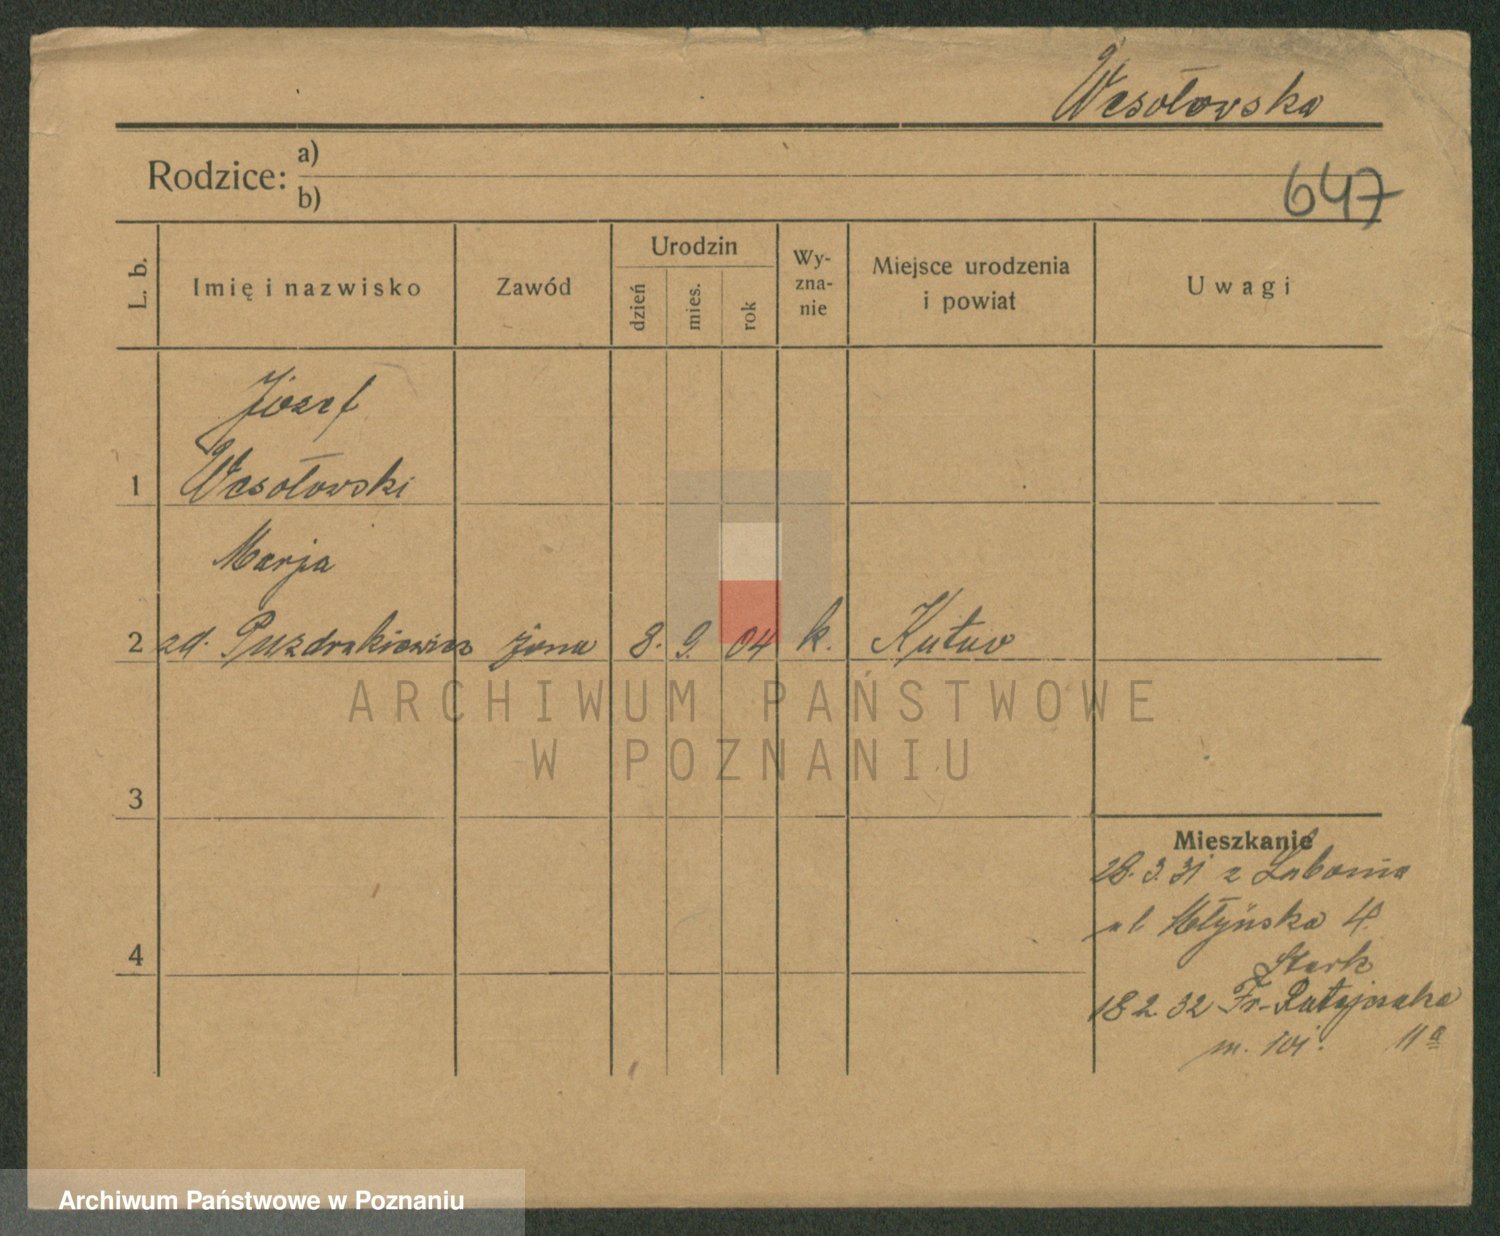 Wesołowska
Rodzice: a)
b)
647
L. b.
Imię i nazwisko
Zawód
Urodzin
dzień
mies.
rok
Wy-
zna-
nie
Miejsce urodzenia
i powiat
Uwagi
Józef
1 Wesołowski
Marja
2 zd. Puzdrakiewicz żona 8. 9. 04 k. Kutuw
3
Mieszkanie
28.3.31 z Lubonia
ul Młyńska 4.
4
18 2. 32 Fr. Ratajczaka
m. 11a
ARCHIWUM PAŃSTWOWE
W POZNANIU
Archiwum Państwowe w Poznaniu